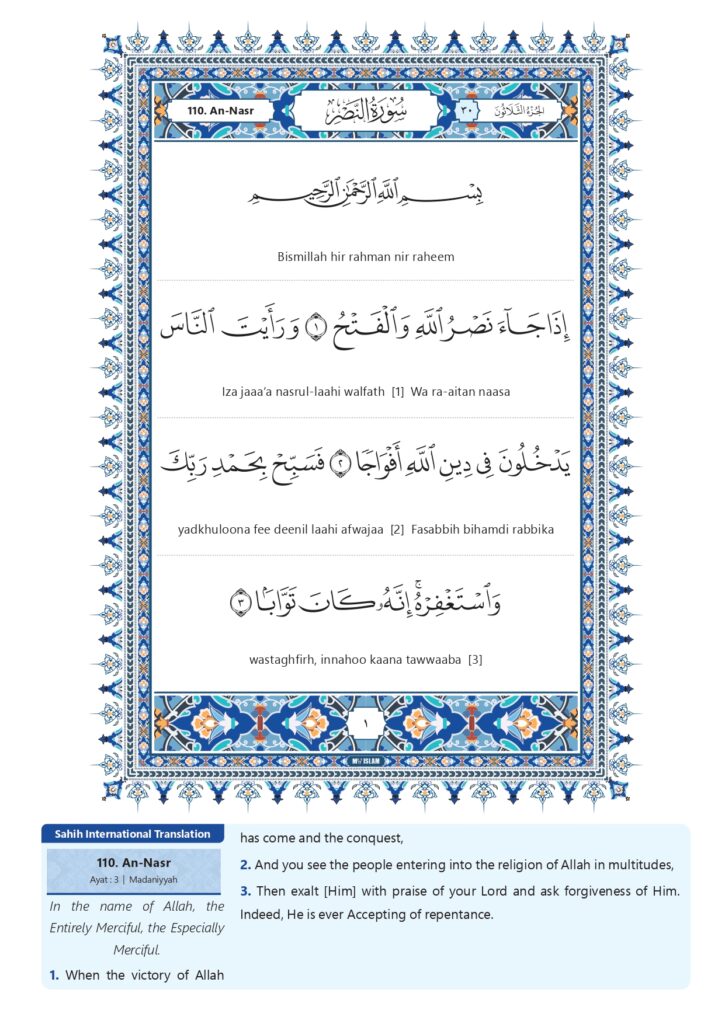 110. An-Nasr
سُورَةُ النَّصْرِ
٣٠
الجُزْءُ الثَّلَاثُونَ
بِسْمِ ٱللَّهِ ٱلرَّحْمَٰنِ ٱلرَّحِيمِ
Bismillah hir rahman nir raheem
إِذَا جَآءَ نَصْرُ ٱللَّهِ وَٱلْفَتْحُ ١ وَرَأَيْتَ ٱلنَّاسَ
Iza jaaa’a nasrul-laahi walfath [1] Wa ra-aitan naasa
يَدْخُلُونَ فِى دِينِ ٱللَّهِ أَفْوَاجًا ٢ فَسَبِّحْ بِحَمْدِ رَبِّكَ
yadkhuloona fee deenil laahi afwajaa [2] Fasabbih bihamdi rabbika
وَٱسْتَغْفِرْهُ ۚ إِنَّهُۥ كَانَ تَوَّابًۢا ٣
wastaghfirh, innahoo kaana tawwaaba [3]
١
MY ISLAM
Sahih International Translation
110. An-Nasr
Ayat : 3 | Madaniyyah
In the name of Allah, the
Entirely Merciful, the Especially
Merciful.
1. When the victory of Allah
has come and the conquest,
2. And you see the people entering into the religion of Allah in multitudes,
3. Then exalt [Him] with praise of your Lord and ask forgiveness of Him.
Indeed, He is ever Accepting of repentance.